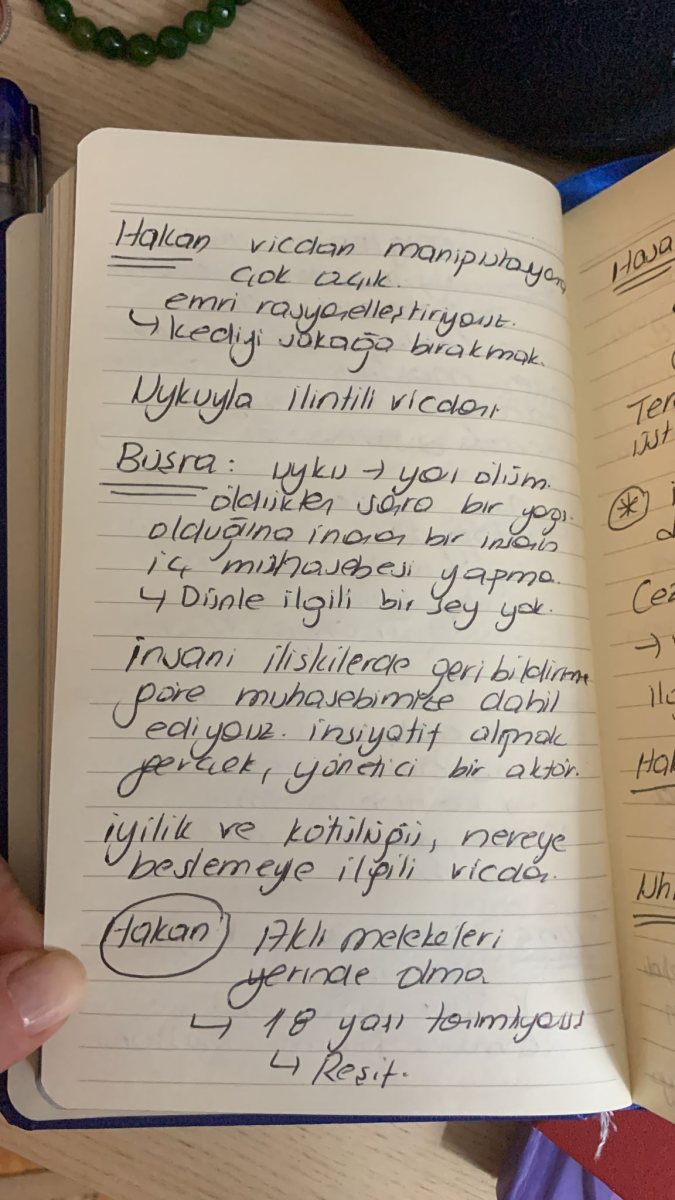 Hakan vicdan manipulasyona
çok açık.
emri rasyonelleştiriyoruz.
↳ kediyi sokağa bırakmak.
Uykuyla ilintili vicdan
Büşra: uyku → yarı ölüm.
öldükten sonra bir yargı
olduğuna inanan bir insan
iç muhasebesi yapma.
↳ Dünle ilgili bir şey yok.
insani iliskilerde geri bildirime
göre muhasebimize dahil
ediyoruz. insiyatif almak
gerçek, yönetici bir aktör.
iyilik ve kötülüğü, nereye
beslemeye ilgili vicdan.
Hakan Akli melekeleri
yerinde olma
↳ 18 yaşı tanımlıyoruz
↳ Reşit.
Hasa
Ter
üst
*
Cez
→
Hak